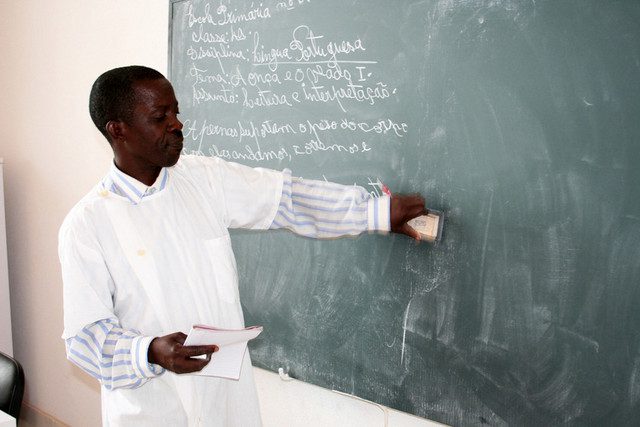 Escola Primária nº
classe: 4ª
Disciplina: Língua Portuguesa
Tema: A onça e o Veado I
Assunto: Leitura e interpretação.
A pernas suportam o peso do corpo
elas andamos, corremos e